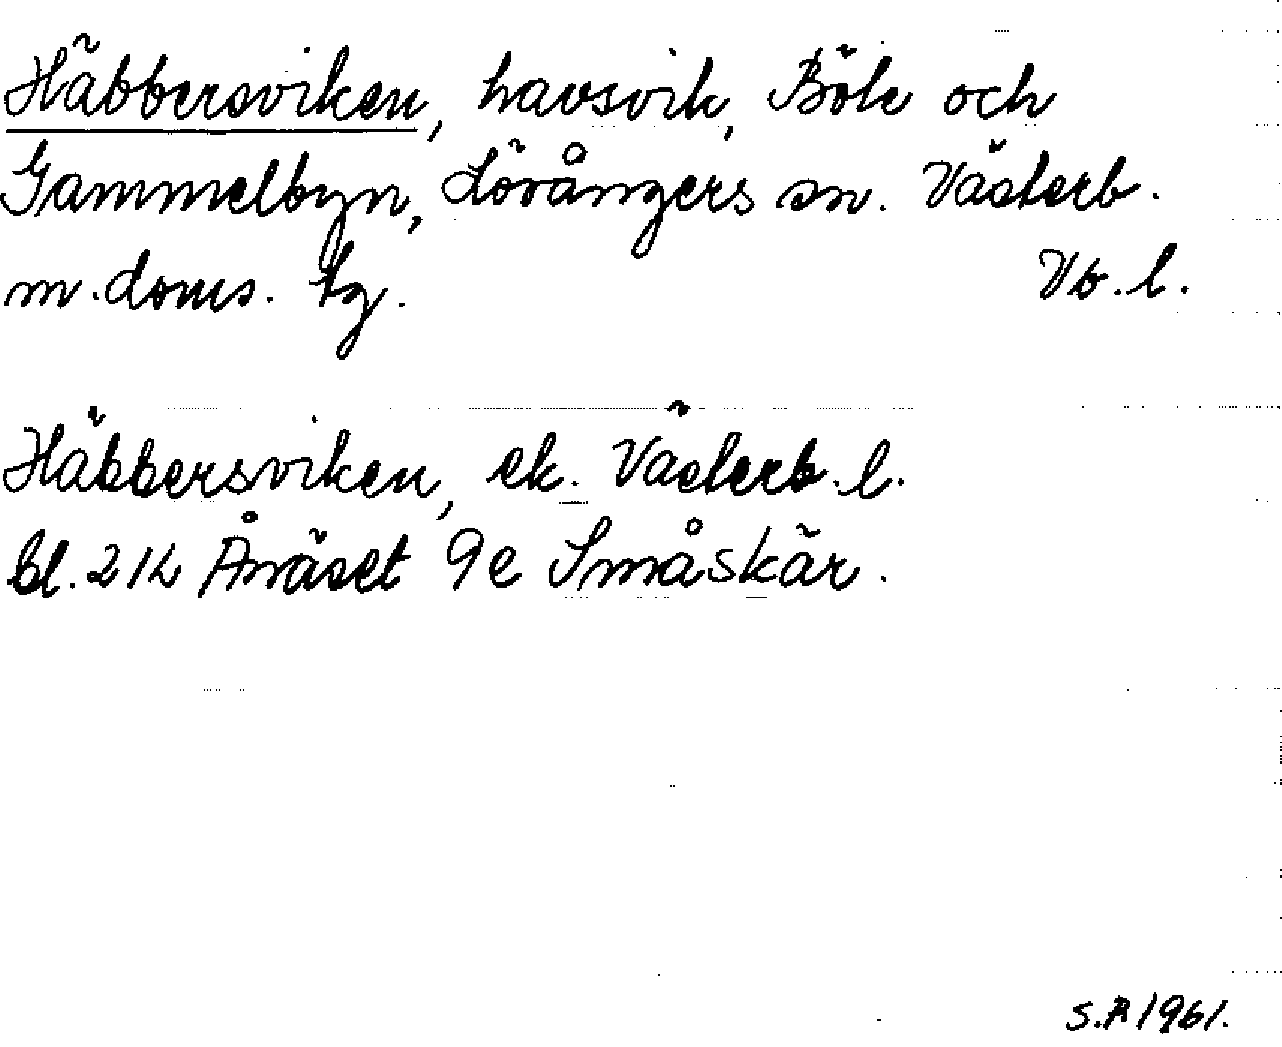 Häbbersviken, havsvik, Böle och
Gammelbyn, Lövångers sn. Västerb.
m. doms. tg. Vb. l.
Häbbersviken, ek. Västerb. l.
bl. 21 L Ånäset 9 e Småskär.
S.R 1961.